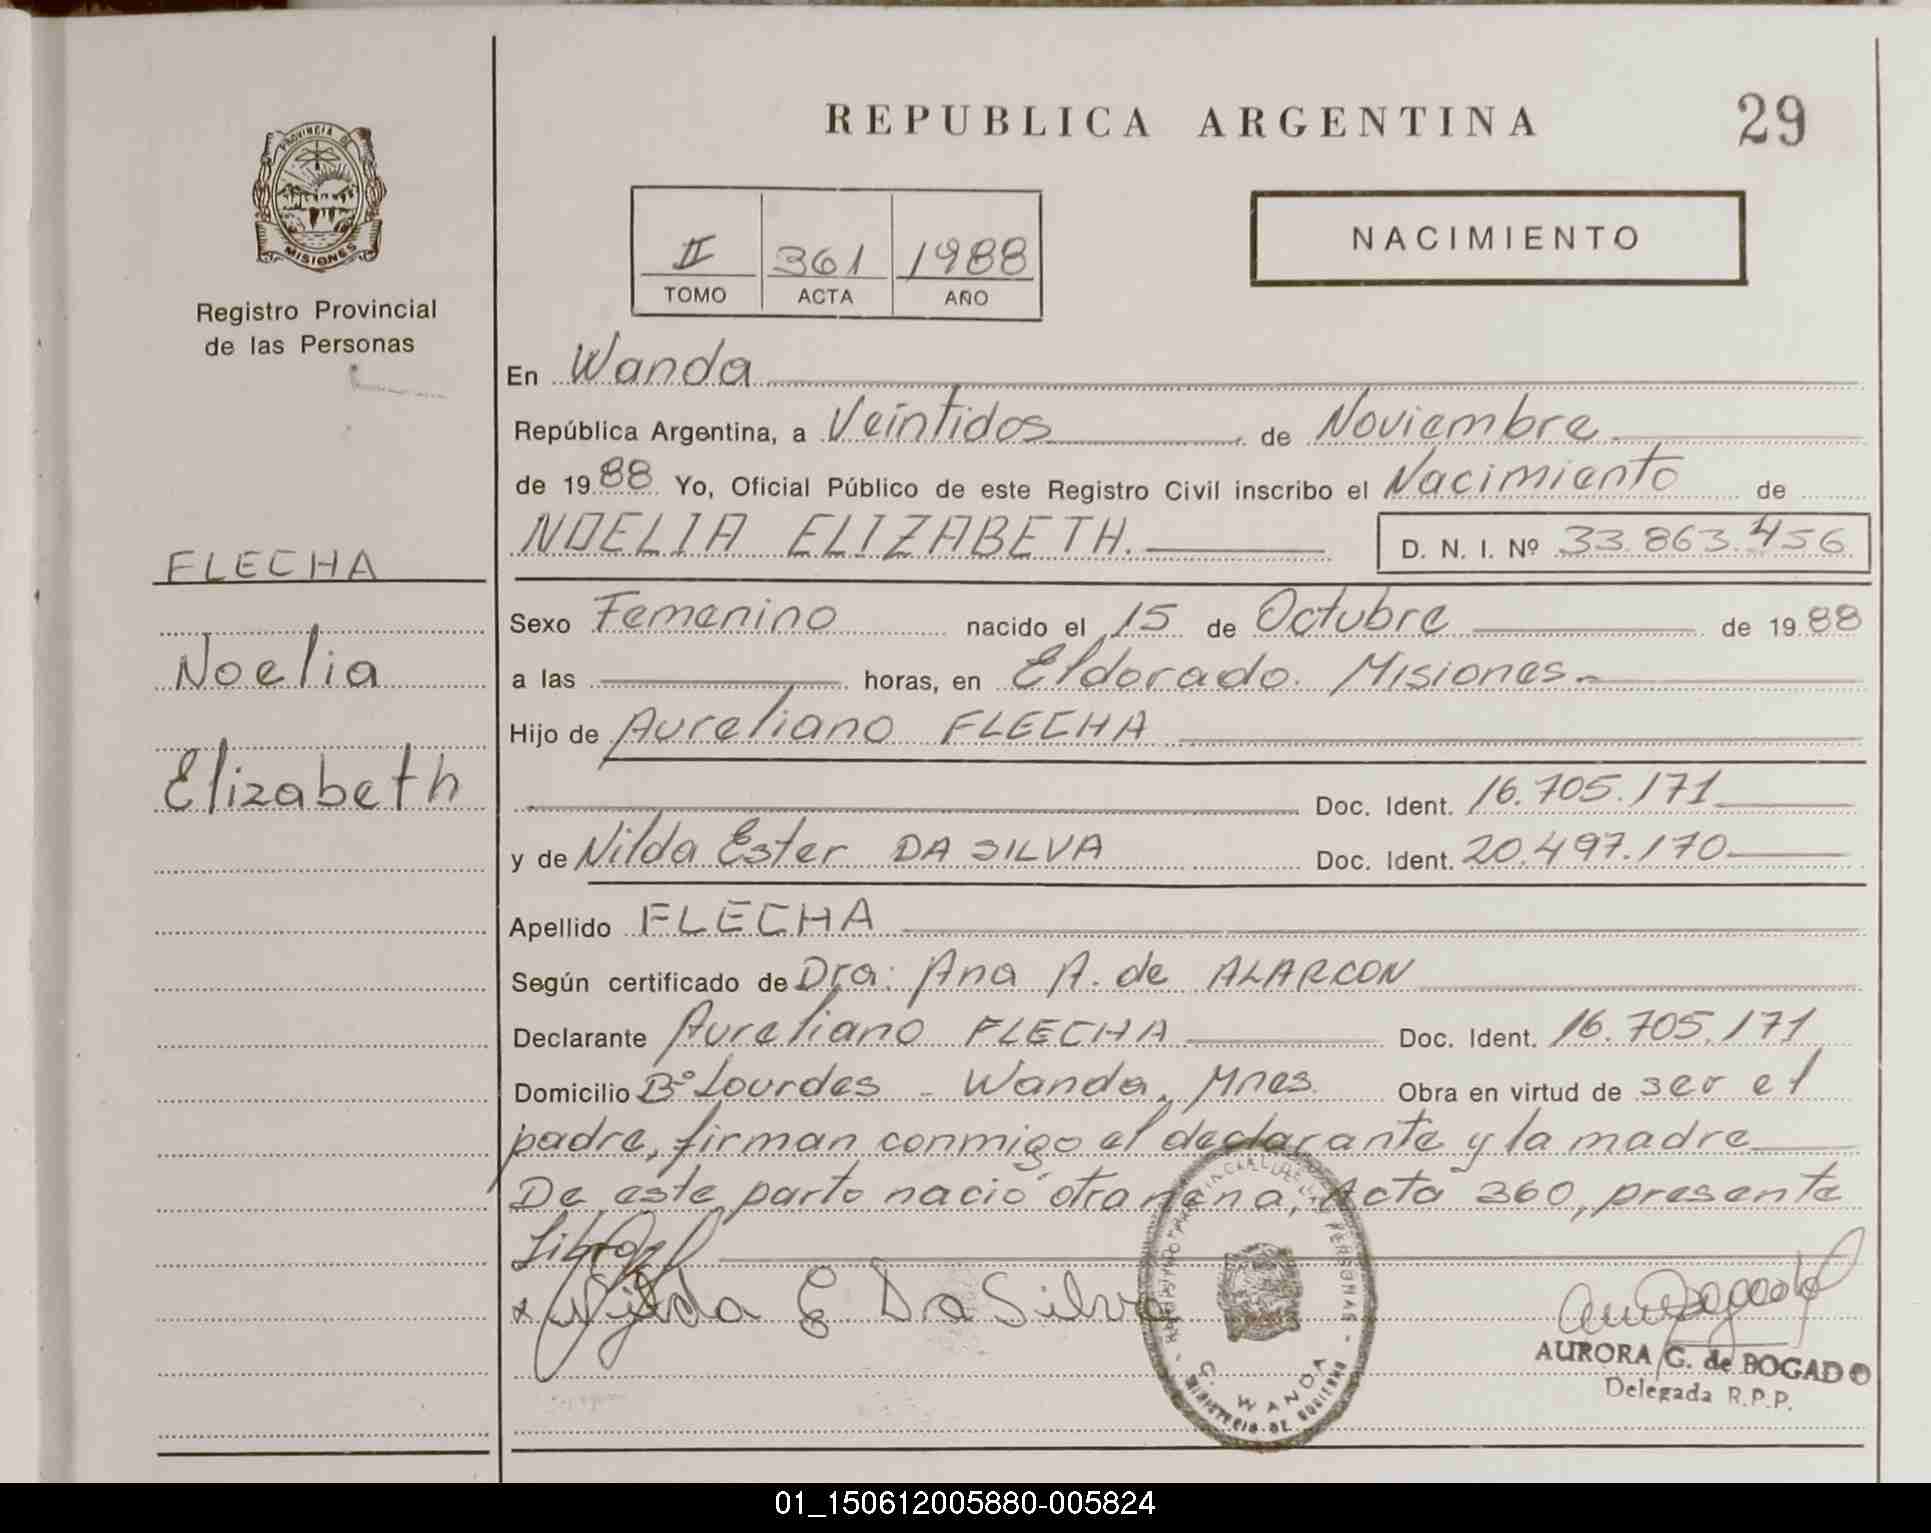 REPUBLICA ARGENTINA
29
PROVINCIA DE
MISIONES
Registro Provincial
de las Personas
FLECHA
Noelia
Elizabeth
II 361 1988
TOMO ACTA AÑO
NACIMIENTO
En Wanda
República Argentina, a Veintidos de Noviembre
de 1988 Yo, Oficial Público de este Registro Civil inscribo el Nacimiento de
NOELIA ELIZABETH. D. N. I. Nº 33.863.456
Sexo Femenino nacido el 15 de Octubre de 1988
a las horas, en Eldorado. Misiones.-
Hijo de Aureliano FLECHA
Doc. Ident. 16.705.171
y de Nilda Ester DA SILVA Doc. Ident. 20.497.170
Apellido FLECHA
Según certificado de Dra: Ana A. de ALARCON
Declarante Aureliano FLECHA Doc. Ident. 16.705.171
Domicilio Bº Lourdes - Wanda, Mnes. Obra en virtud de ser el
padre, firman conmigo el declarante y la madre
De este parto nació otra nena, Acta 360, presente
Libro
Nilda E Da Silva
PERSONAS
C. WANDA
MINISTERIO DE GOBIERNO
AURORA G. de BOGADO
Delegada R.P.P.
01_150612005880-005824